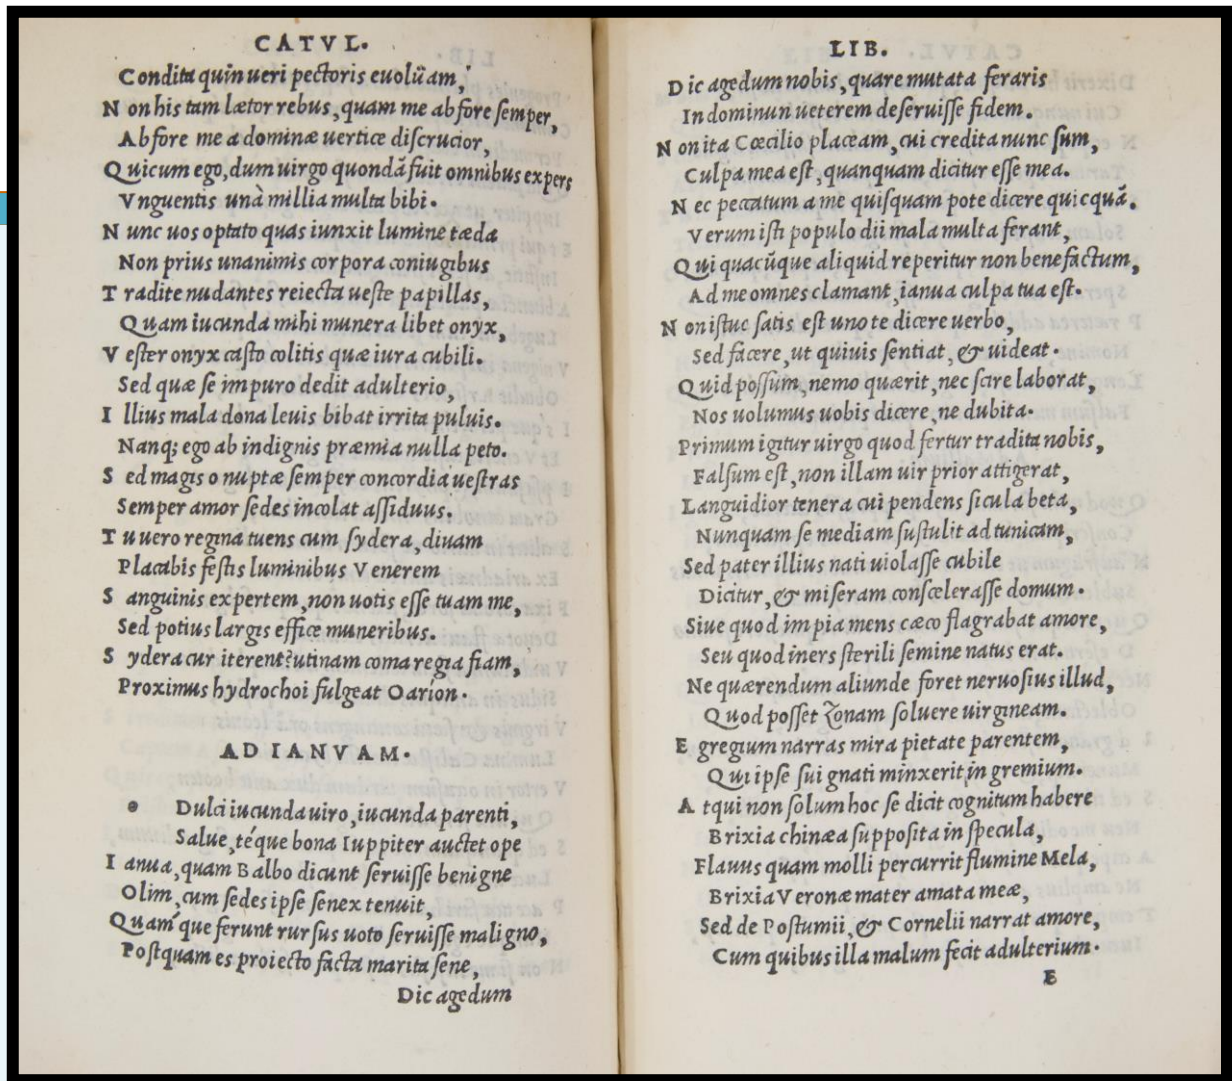 CATVL.
Condita quin ueri pectoris euolũam,
N on his tam lætor rebus, quam me abfore semper,
Abfore me a dominæ uertice discrucior,
Q uicum ego, dum uirgo quondã fuit omnibus expers
Vnguentis unà millia multa bibi.
N unc uos optato quas iunxit lumine tæda
Non prius unanimis corpora coniugibus
T radite nudantes reiecta ueste papillas,
Quam iucunda mihi munera libet onyx,
V ester onyx casto colitis quæ iura cubili.
Sed quæ se impuro dedit adulterio,
I llius mala dona leuis bibat irrita puluis.
Nanq; ego ab indignis præmia nulla peto.
S ed magis o nuptæ semper concordia uestras
Semper amor sedes incolat assiduus.
T u uero regina tuens cum sydera, diuam
Placabis festis luminibus Venerem
S anguinis expertem, non uotis esse tuam me,
Sed potius largis effice muneribus.
S ydera cur iterent? utinam coma regia fiam,
Proximus hydrochoi fulgeat Oarion.
AD IANVAM.
o Dulci iucunda uiro, iucunda parenti,
Salue, téque bona Iuppiter auctet ope
I anua, quam Balbo dicunt seruisse benigne
Olim, cum sedes ipse senex tenuit,
Quam´que ferunt rursus uoto seruisse maligno,
Postquam es proiecto facta marita sene,
Dic agedum
LIB.
D ic agedum nobis, quare mutata feraris
In dominun ueterem deseruisse fidem.
N on ita Cœcilio placeam, cui credita nunc sum,
Culpa mea est, quanquam dicitur esse mea.
N ec peccatum a me quisquam pote dicere quicquã.
Verum isti populo dii mala multa ferant,
Q ui quacũque aliquid reperitur non benefactum,
Ad me omnes clamant, ianua culpa tua est.
N on istuc satis est uno te dicere uerbo,
Sed facere, ut quiuis sentiat, & uideat.
Quid possum, nemo quærit, nec scire laborat,
Nos uolumus uobis dicere, ne dubita.
Primum igitur uirgo quod fertur tradita nobis,
Falsum est, non illam uir prior attigerat,
Languidior tenera cui pendens sicula beta,
Nunquam se mediam sustulit ad tunicam,
Sed pater illius nati uiolasse cubile
Dicitur, & miseram conscelerasse domum.
Siue quod impia mens cæco flagrabat amore,
Seu quod iners sterili semine natus erat.
Ne quærendum aliunde foret neruosius illud,
Quod posset zonam soluere uirgineam.
E gregium narras mira pietate parentem,
Qui ipse sui gnati minxerit in gremium.
A tqui non solum hoc se dicit cognitum habere
Brixia chinæa supposita in specula,
Flauus quam molli percurrit flumine Mela,
Brixia Veronæ mater amata meæ,
Sed de Postumii, & Cornelii narrat amore,
Cum quibus illa malum fecit adulterium.
E